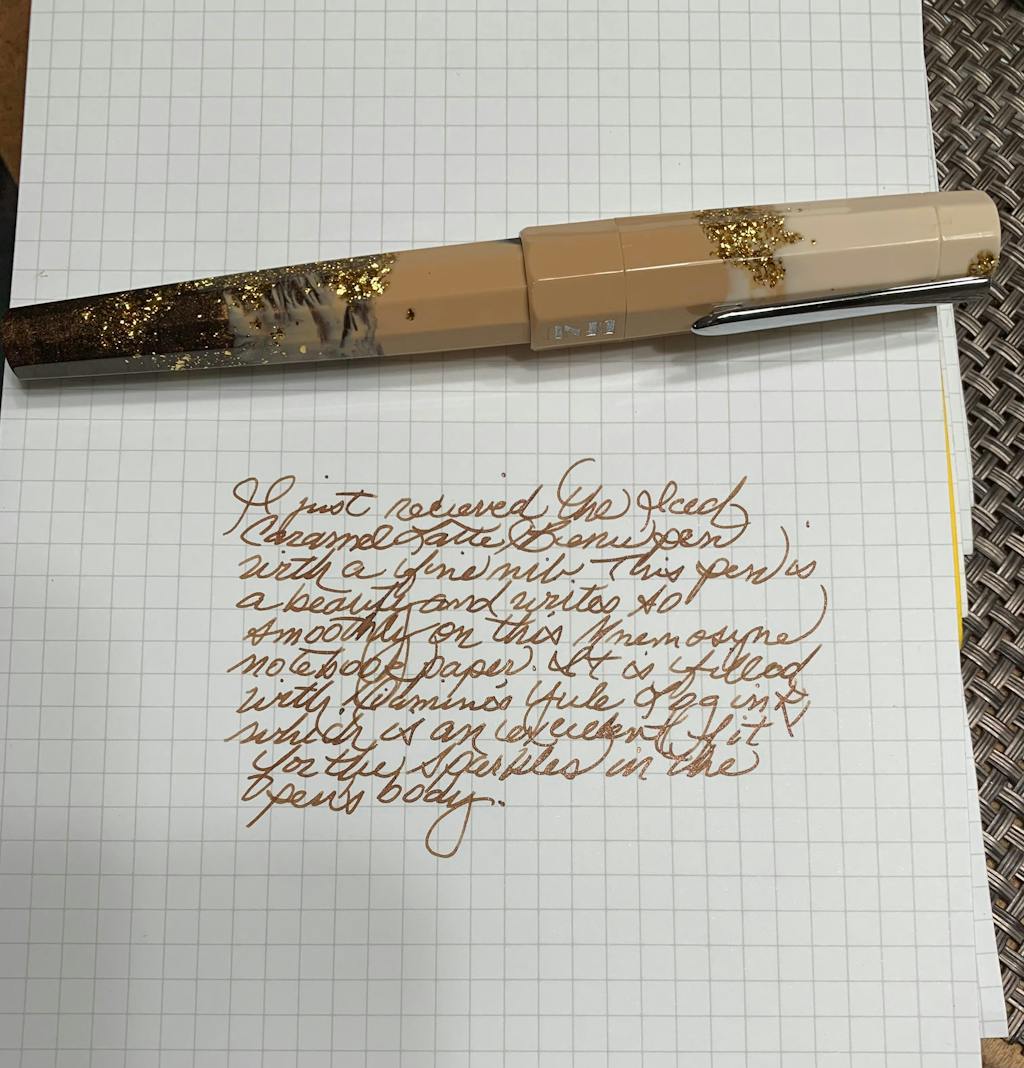 I just recieved the Iced
Caramel Latte Benu pen
with a fine nib. This pen is
a beauty and writes so
smoothly on this Mnemosyne
notebook paper. It is filled
with Diamine's Yule Log ink
which is an excellent fit
for the sparkles in the
pen's body.